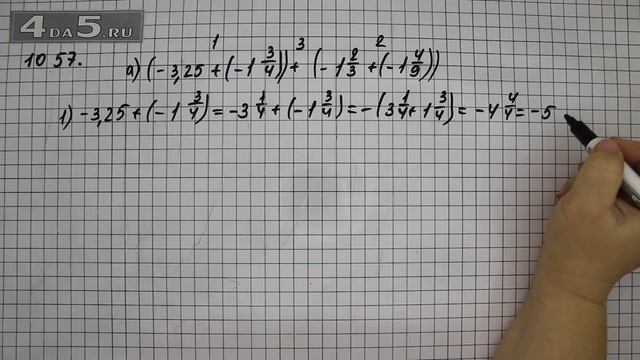 4DA5.RU
1057.
1 3 2
а) (-3,25 + (-1 3/4)) + (-1 2/3 + (-1 4/9))
1) -3,25 + (-1 3/4) = -3 1/4 + (-1 3/4) = -(3 1/4 + 1 3/4) = -4 4/4 = -5